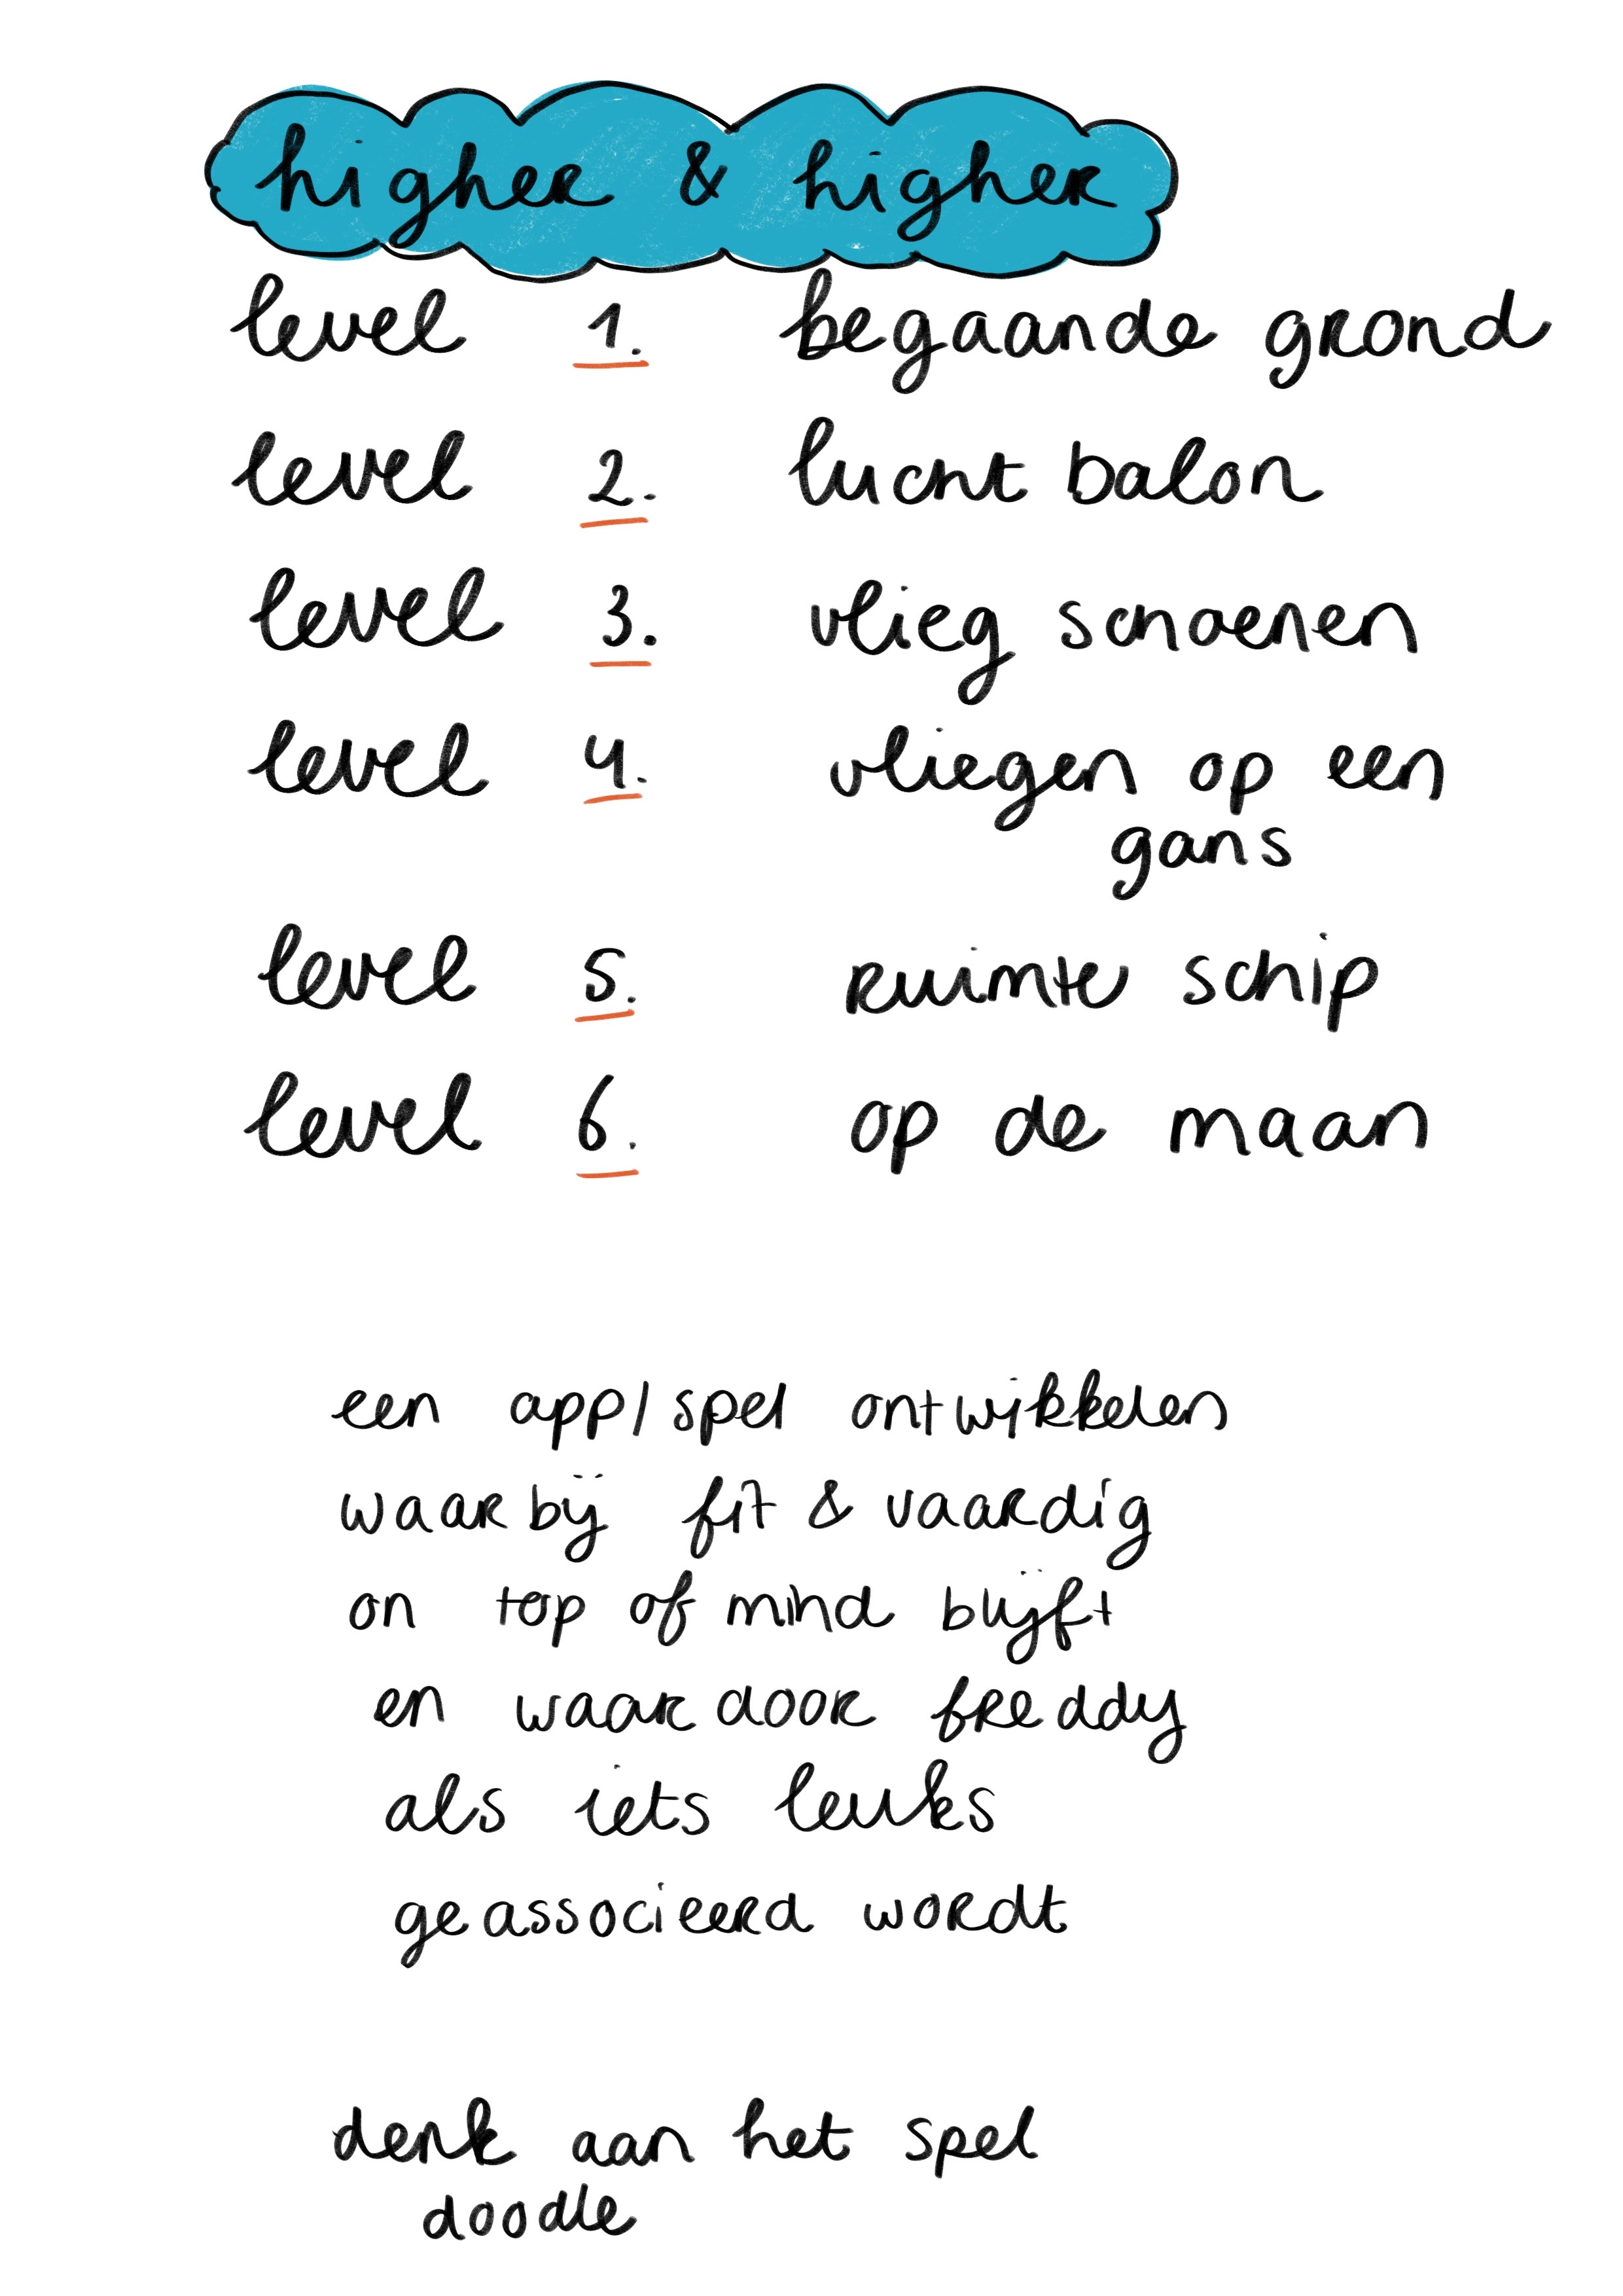 higher & higher
level 1. begaande grond
level 2. lucht balon
level 3. vlieg schoenen
level 4. vliegen op een
gans
level 5. ruimte schip
level 6. op de maan
een app/spel ontwikkelen
waarbij fit & vaardig
on top of mind blijft
en waardoor freddy
als iets leuks
geassocieerd wordt
denk aan het spel
doodle